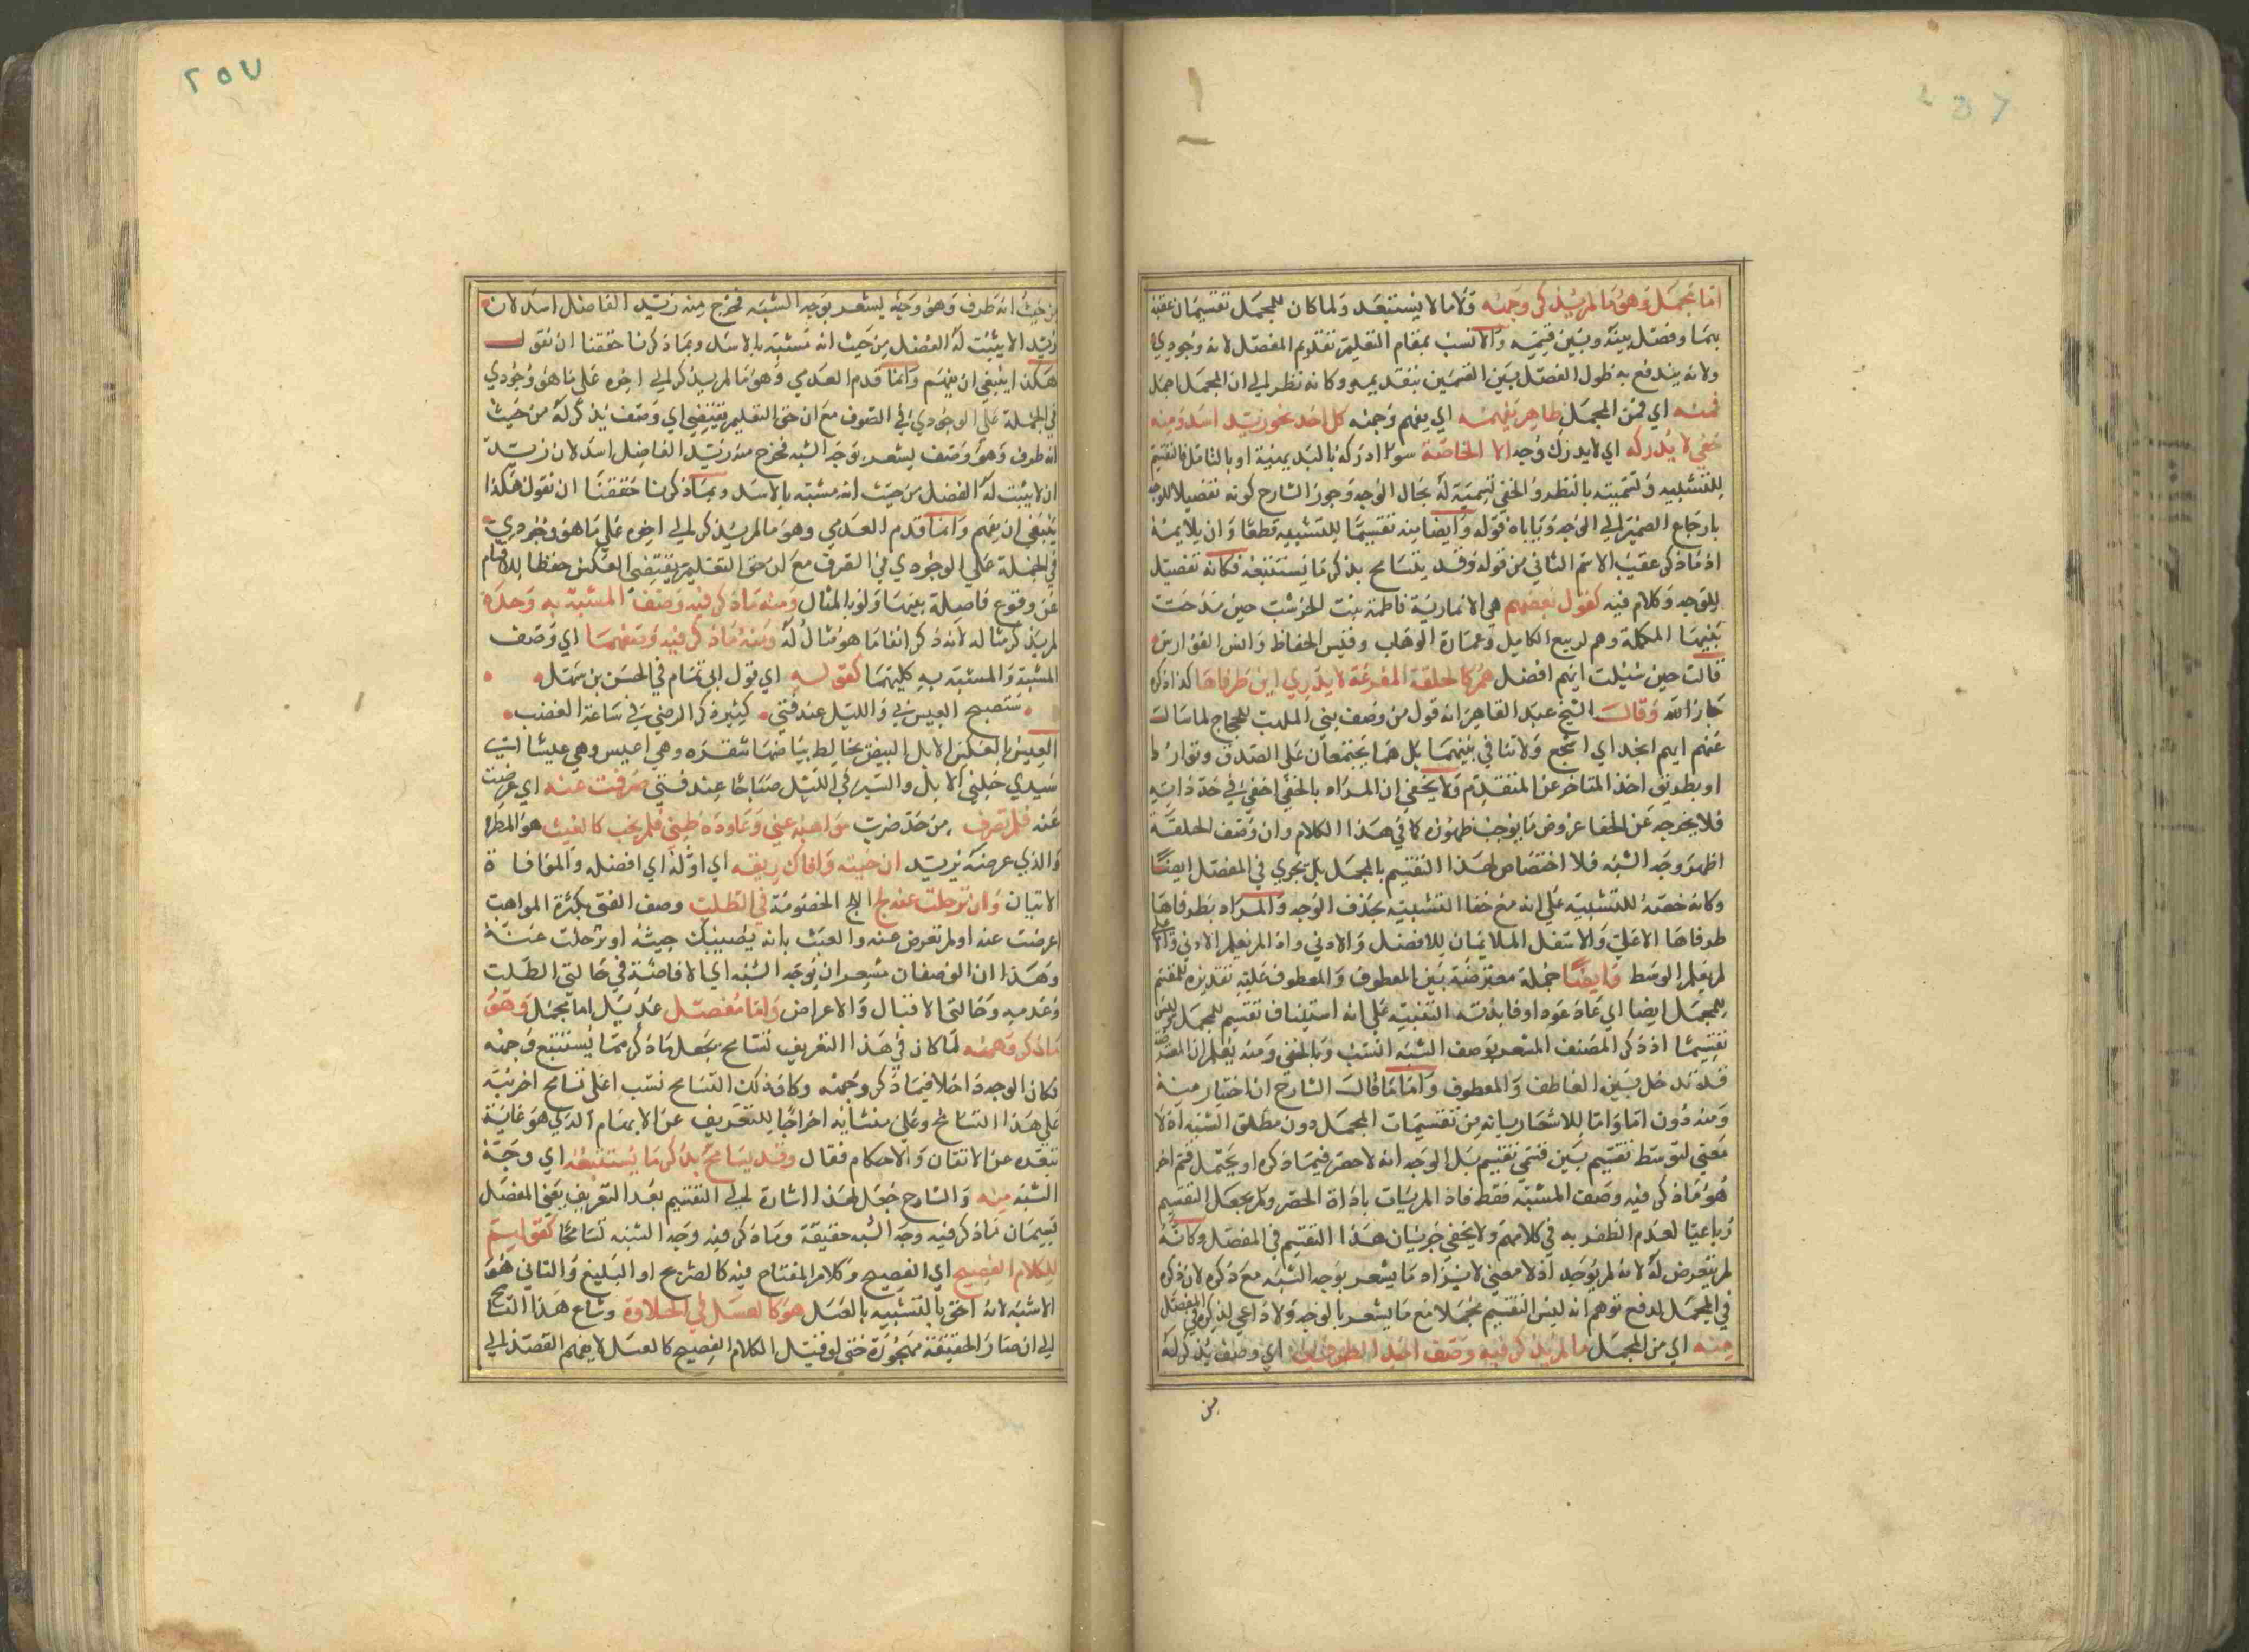 اما مجمل وهو ما لم يذكر وجهه وكلاما لا يستبعد ولما كان للمجمل تقسيمان عقبه
بهما وفصل بينه وبين قسيمه والانسب بمقام التعليم تقديم المفصل لانه وجودي
ولانه يندفع به طول الفصل بين القسمين بتقديمه وكانه نظر الى ان المجمل اجمل
فمنه اي فمن المجمل ظاهر يفهمه اي يفهم وجهه كل احد نحو زيد اسد ومنه
خفي لا يدركه اي لا يدرك وجهه الا الخاصة سوا ادركه بالبديهية او بالتامل فالتقسيم
للتشبيه وتسميته بالظاهر والخفي تسمية له بحال الوجه وجوز الشارح كونه تفصيلا للوجه
بارجاع الضمير الى الوجه وياباه قوله وايضا منه تقسيما للتشبيه قطعا وان يلايمه
اذ ما ذكر عقيب الاسم الثاني من قوله وقد يتسامح بذكر ما يستتبعه فكانه تفصيل
للوجه وكلام فيه كقول بعضهم هي الانمارية فاطمة بنت الخرشب حين مدحت
بنيها الكملة وهم ربيع الكامل وعمارة الوهاب وقيس الحفاظ وانس الفوارس
قالت حين سئلت ايهم افضل هم كالحلقة المفرغة لا يدري اين طرفاها كذا ذكره
جار الله وقال الشيخ عبد القاهر انه قول من وصف بني المهلب للحجاج لما سال
عنهم ايهم انجد اي اشجع ولا تنافي بينهما بل هما يجتمعان على الصدق وتوارد
او بطريق اخذ المتاخر عن المتقدم ولا يخفى ان المراد بالخفي اخفي في حد ذاته
فلا يخرجه عن الخفا عروض ما يوجب ظهوره كما في هذا الكلام وان وصف الحلقة
اظهر وجه الشبه فلا اختصاص لهذا التقسيم بالمجمل بل يجري في المفصل ايضا
وكانه خصه للتشبيه على انه مع خفا التشبيه بحذف الوجه والمراد بطرفاها
طرفاها الاعلى والاسفل الملايمان للافضل والادنى واذا لم يعلم الادنى والاعلى
لم يعلم الوسط وايضا جملة معترضة بين المعطوف والمعطوف عليه تقديره للتقسيم
للمجمل ايضا اي عاد عودا وفائدته التنبيه على انه استيناف تقسيم للمجمل ليس
تقسيما اذ ذكر المصنف المشعر بوصف الشبه انسب وبالخفي ومنه يعلم ان المعترضة
قد تدخل بين العاطف والمعطوف واما ما قال الشارح ان اختيار منه
ومنه دون اما واما للاشعار بانه من تقسيمات المجمل دون مطلق الشبه اذ لا
معنى لتوسط تقسيم بين قسمي تقسيم بل الوجه انه لا حصر فيما ذكره او يحتمل قسم اخر
هو ما ذكر فيه وصف المشبه فقط فاذا لم يات باداة الحصر ولم يجعل التقسيم
رباعيا لعدم الظفر به في كلامهم ولا يخفى جريان هذا التقسيم في المفصل وكانه
لم يتعرض له لانه لم يوجد اذ لا معنى لايراد ما يشعر بوجه الشبه مع ذكره لان ذكره
في المجمل لدفع توهم انه ليس التقسيم مجملا مع ما يشعر بالوجه ولا داعي لذكره في المفصل
منه اي من المجمل ما لم يذكر فيه وصف احد الطرفين اي وصف يذكر له
من
٢٥٧
من حيث انه طرف وهو وجه يشعر بوجه الشبه فخرج منه زيد الفاضل اسد لان
زيد الا يثبت له الفضل من حيث انه مشبه بالاسد وبما ذكرنا حققنا ان نقول
هكذا ينبغي ان يفهم وانما قدم العدمي وهو ما لم يذكر الى اخره على ما هو وجودي
في الجملة على الوجودي في الصوف مع ان حق التعليم يقتضي اي وصف يذكر له من حيث
انه طرف وهو وصف يشعر بوجه الشبه فخرج منه زيد الفاضل اسد لان زيد
ان لا يثبت له الفضل من حيث انه مشبه بالاسد وبما ذكرنا حققنا ان نقول هكذا
ينبغي ان يفهم وانما قدم العدمي وهو ما لم يذكر الى اخره على ما هو وجودي
في الجملة على الوجودي في القرف مع ان حق التعليم يقتضي العكس حفظا للاقسام
عن وقوع فاصلة بينهما ولو بالمثال ومنه ما ذكر فيه وصف المشبه به وحده
لم يذكر مثاله لانه ذكر انفا ما هو مثال له ومنه ما ذكر فيه وصفهما اي وصف
المشبه والمشبه به كليهما كقوله اي قول ابي تمام في الحسن بن سهل
ستصبح العيس بي والليل عند فتى كثير ذكر الرضى في ساعة الغضب
العيس بالعكس الابل البيض يخالط بياضها شقرة وهي اعيس وهي عيشا اي
سيدي خلني الابل والسير في الليل صباحا عند فتى صدفت عنه اي عرضت
عنه فلم تصرف من حد ضرب مواهبه عني وعاوده ظني فلم يخب كالغيث هو المطر
والذي عرضه يريد ان جيته وافاك ريقه اي اوله اي افضله والموافاة
الاتيان وان ترحلت عنه لج الج الخصومة في الطلب وصف الفتى بكثرة المواهب
اعرضت عنه اولم تعرض عنه والغيث بانه يصيبك جيته او ترحلت عنه
وهذا ان الوصفان مشعران بوجه الشبه اي الافاضة في حالتي الطلب
وعدمه وحالتي الاقبال والاعراض واما مفصل عديل اما مجمل وهو
ما ذكر وجهه لما كان في هذا التعريف تسامح يجعل ما ذكر مما يستتبع وجهه
فكان الوجه داخلا فيما ذكر وجهه وكان ذلك التسامح نسب اعلى تسامح اخر نبه
على هذا التسامح وعلى منشايه اخراجا للتعريف عن الابهام الذي هو غاية
تبعده عن الاتقان والاحكام فقال وقد يتسامح بذكر ما يستتبعه اي وجه
الشبه منه والشارح جعل لهذا اشارة الى التقسيم بعد التعريف يعني المفصل
قسمان ما ذكر فيه وجه الشبه حقيقة وما ذكر فيه وجه الشبه تسامحا كقولهم
للكلام الفصيح اي الفصيح وكلام المفتاح فيه كالصريح او البليغ والثاني هو
الاشبه لانه احق بالتشبيه بالعسل هو كالعسل في الحلاوة وشاع هذا التسامح
الى ان صار الحقيقة مهجورة حتى لو قيل الكلام الفصيح كالعسل لا يفهم القصد الى